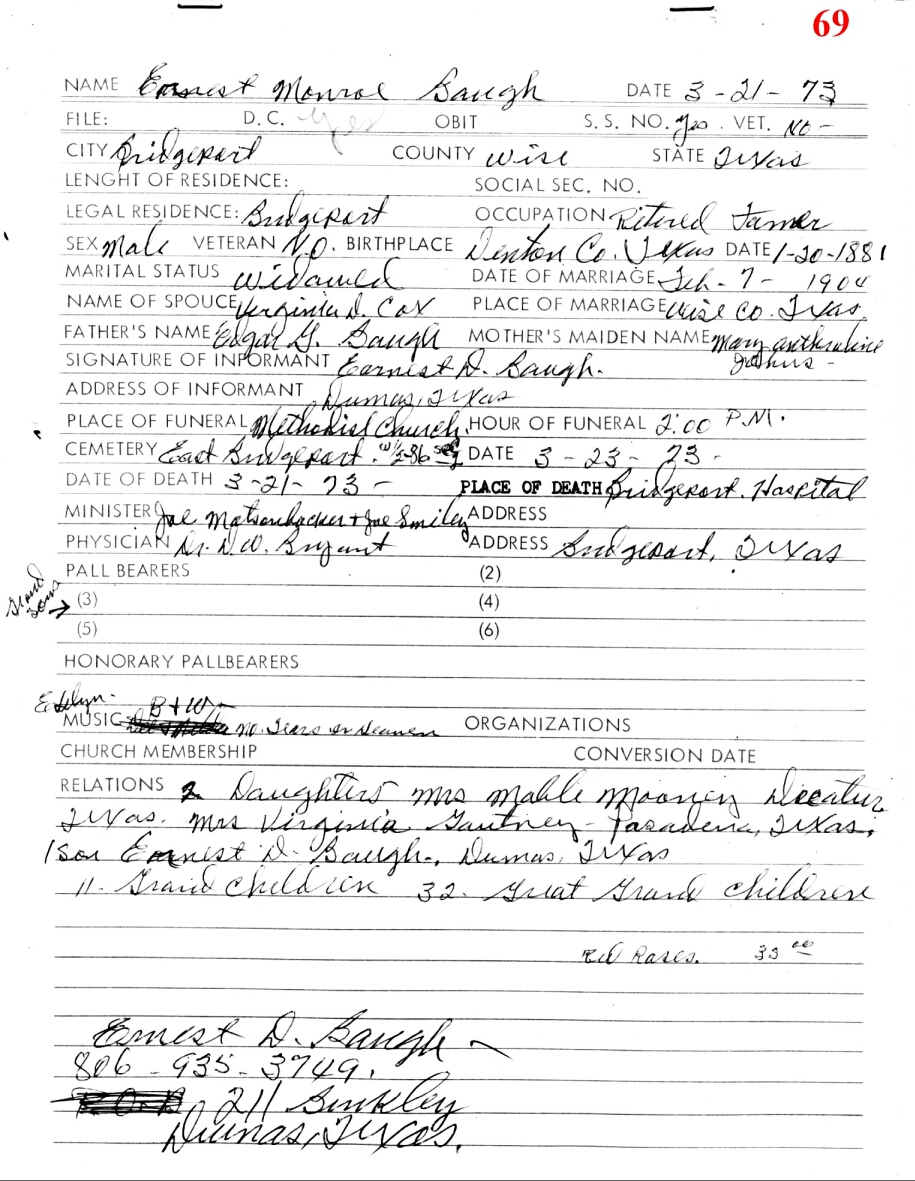 69
NAME Earnest Monroe Baugh DATE 3-21-73
FILE: D.C. yes OBIT S.S. NO. yes. VET. No-
CITY Bridgeport COUNTY Wise STATE Texas
LENGHT OF RESIDENCE: SOCIAL SEC. NO.
LEGAL RESIDENCE: Bridgeport OCCUPATION Ritered Farmer
SEX Male VETERAN NO. BIRTHPLACE Denton Co. Texas DATE 1-20-1881
MARITAL STATUS Widowed DATE OF MARRIAGE Feb-7-1904
NAME OF SPOUCE Verginia D. Cox PLACE OF MARRIAGE Wise Co. Texas.
FATHER'S NAME Edgar G. Baugh MOTHER'S MAIDEN NAME Mary
SIGNATURE OF INFORMANT Earnest D. Baugh.
ADDRESS OF INFORMANT Dumas, Texas
PLACE OF FUNERAL Methodist Church, HOUR OF FUNERAL 2:00 P.M.
CEMETERY East Bridgeport. DATE 3-23-73-
DATE OF DEATH 3-21-73- PLACE OF DEATH Bridgeport. Hospital
MINISTER Joe + Joe Smiley ADDRESS
PHYSICIAN Dr. D.W. Bryant ADDRESS Bridgeport, Texas
PALL BEARERS (2)
Grand Sons → (3) (4)
(5) (6)
HONORARY PALLBEARERS
B+W-
MUSIC No. Tears in Heaven ORGANIZATIONS
CHURCH MEMBERSHIP CONVERSION DATE
RELATIONS 2 Daughters Mrs Mable Mooney Decatur
Texas. Mrs Virginia Gautney- Pasadena, Texas.
1 son Earnest D. Baugh., Dumas, Texas
11. Grand children 32. Great Grand children
Red Roses. 33 00
Ernest D. Baugh
806-935-3749.
211 Binkley
Dumas, Texas.